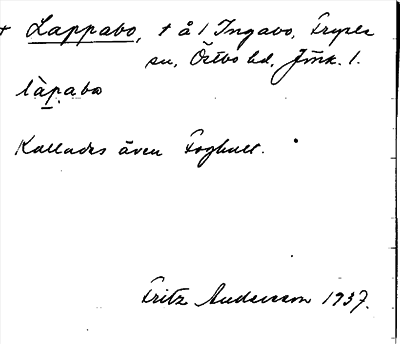 + Lappabo, t å 1 Ingabo, Fryele
sn, Östbo hd, Jönk. l.
làp.abω
Kallades även Foghult.
Fritz Anderson 1937.